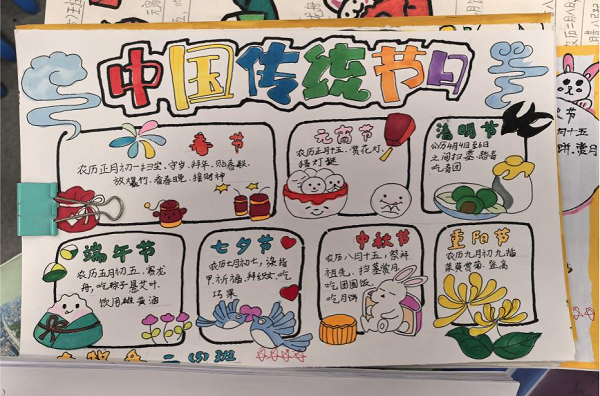 中国传统节日
春节
农历正月初一扫尘、守岁、拜年、贴春联、
放爆竹、看春晚、接财神
元宵节
农历正月十五、赏花灯、
猜灯谜
清明节
公历4月4日至6日
之间扫墓、踏青
吃青团
端午节
农历五月初五、赛龙
舟、吃粽子悬艾叶、
饮用雄黄酒
七夕节
农历七月初七、
祈福、拜织女、吃
巧果
中秋节
农历八月十五、祭拜
祖先、扫墓赏月
吃团圆饭
吃月饼
重阳节
农历九月初九插
茱萸赏菊、登高
二(5)班